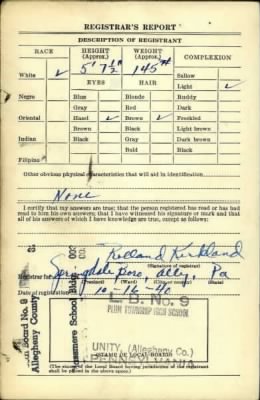 REGISTRAR'S REPORT
DESCRIPTION OF REGISTRANT
RACE HEIGHT (Approx.) WEIGHT (Approx.) COMPLEXION
5' 7½" 145#
White ✓ EYES HAIR Sallow
Light ✓
Negro Blue Blonde Ruddy
Gray Red Dark
Oriental Hazel ✓ Brown ✓ Freckled
Brown Black Light brown
Indian Black Gray Dark brown
Bald Black
Filipino
Other obvious physical characteristics that will aid in identification
None
I certify that my answers are true; that the person registered has read or has had
read to him his own answers; that I have witnessed his signature or mark and that
all of his answers of which I have knowledge are true, except as follows:
Kirkland
(Signature of registrar)
Registrar for Springdale Boro, Alleg, Pa
(Precinct) (Ward) (City or county) (State)
Date of registration 10-16-40
L. B. No. 9
PLUM TOWNSHIP HIGH SCHOOL
UNITY, (Allegheny Co.)
PENNSYLVANIA
(STAMP OF LOCAL BOARD)
(The stamp of the Local Board having jurisdiction of the registrant
shall be placed in the above space.)
Board No. 9
Allegheny County
School Bldg.